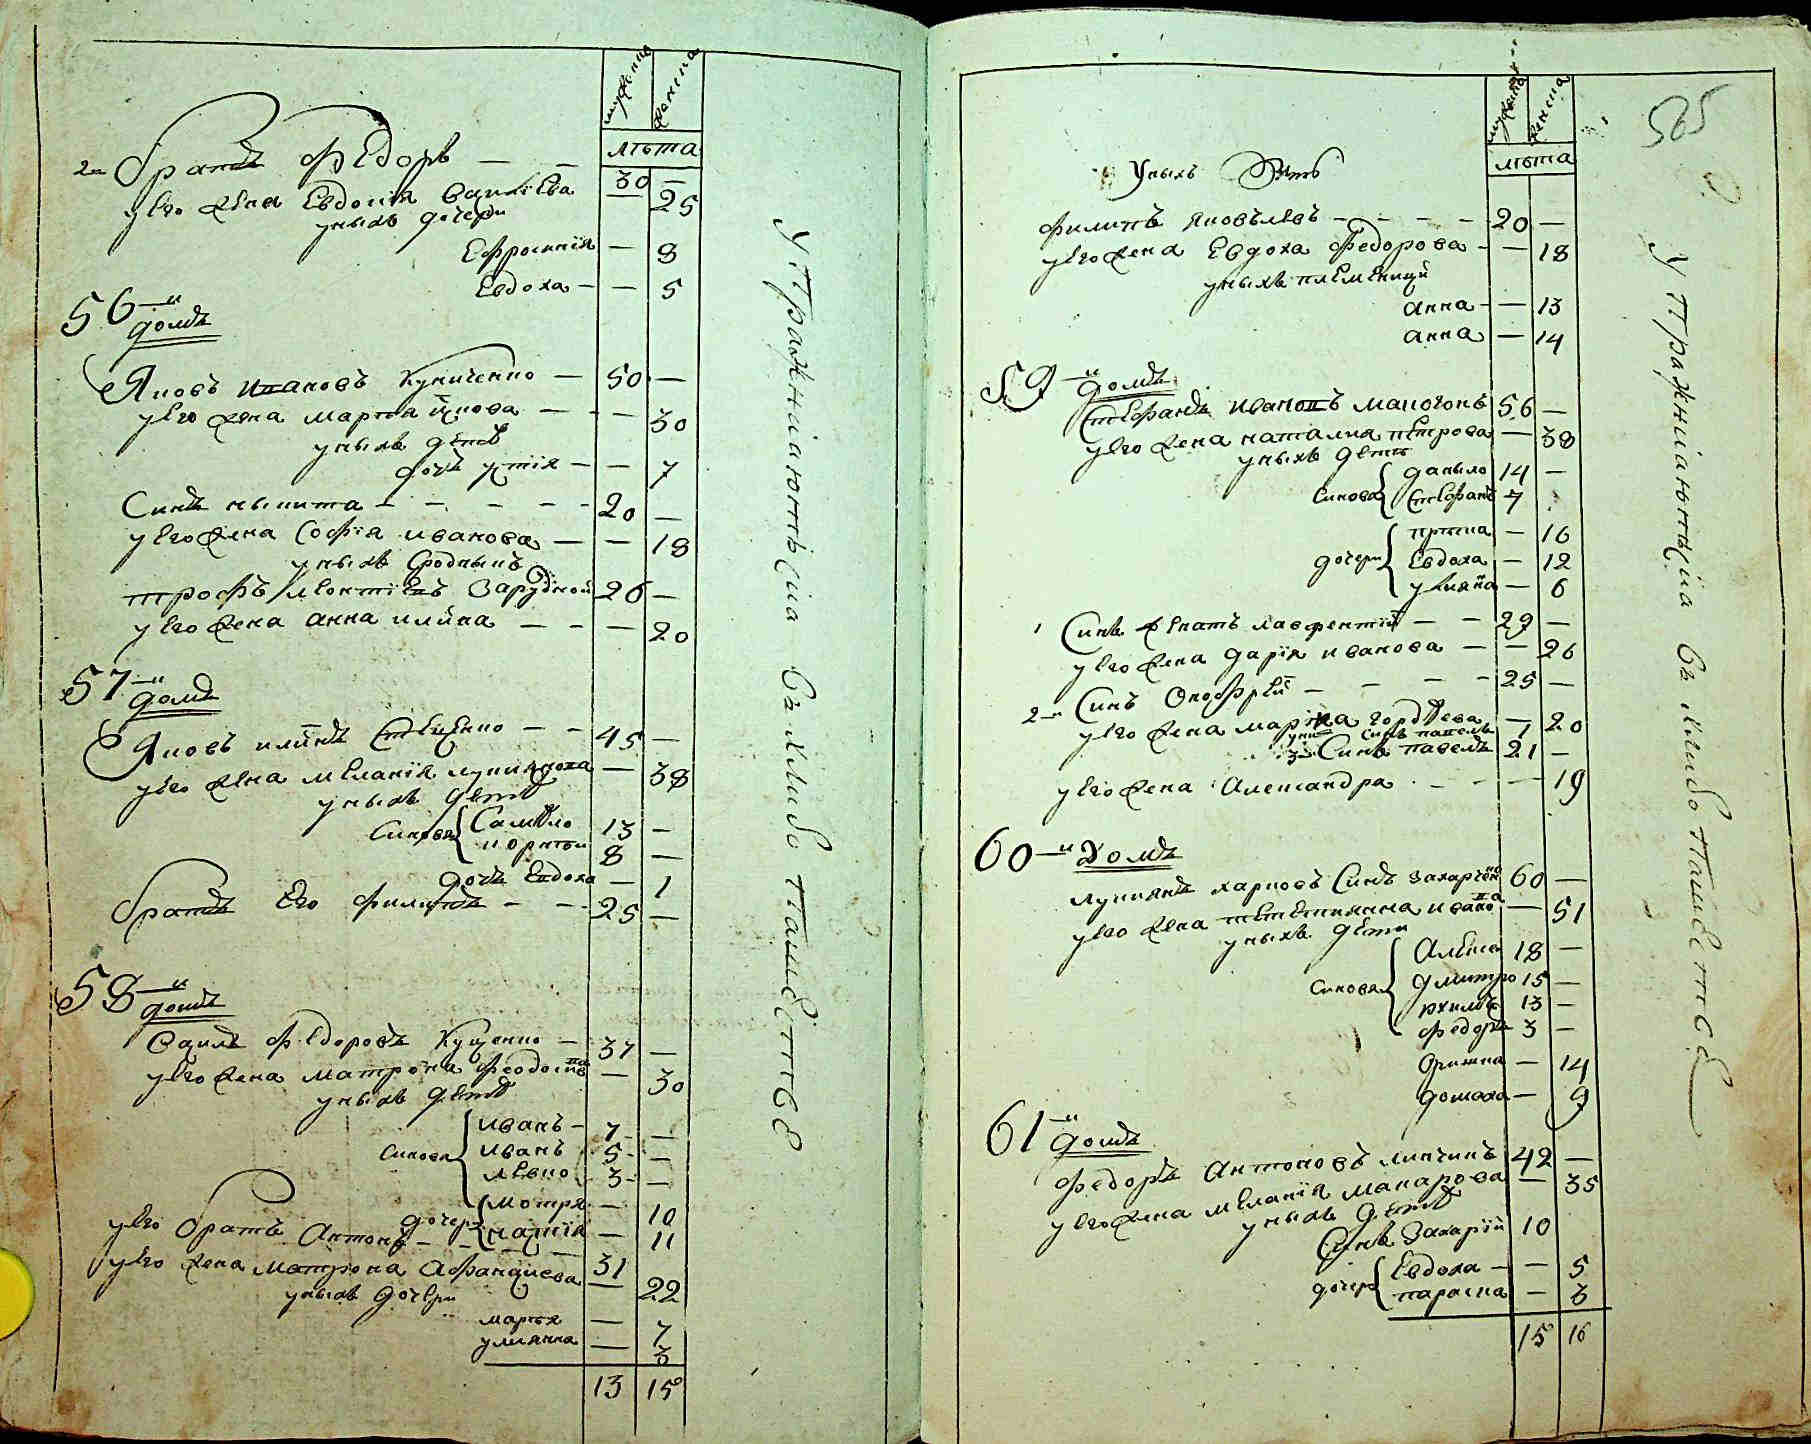 мужеска женска
лѣта
2й братъ Федоръ — — 30 —
у его жена Евдокія Василіева — 25
у нихъ дочери
Ефросинія — 8
Евдоха — — 5
56-й
домъ
Яковъ Ивановъ Куниченко — 50 —
у его жена Марта — — 30
у нихъ дети
дочъ Устія — — 7
Синъ Никита — — — — 20 —
у его жена Софія Иванова — — 18
у нихъ сродникъ
Леонтіевъ Зарудной 26 —
у его жена Анна — — — 20
57-й
домъ
Яковъ — — 45 —
у его жена Меланія — 38
у нихъ дети
Синовя Самойло 13 —
8 —
дочъ Евдоха — 1
братъ его Филипъ — — 25 —
58-й
домъ
Федоровъ Куценко — 37 —
у его жена Матрона — 30
у нихъ дети
Синовя Иванъ — 7 —
Иванъ 5 —
Левко 3 —
дочери Мотря — 10
Настія — 11
у его братъ Антонъ — — — — 31
у его жена Матрона Афанасиева — 22
у нихъ дочери
Марья — 7
Улиянна — 3
13 15
Упражніаютсіа въ хлибопашестве
565
мужеска женска
лѣта
У нихъ зять
Филипъ Яковълевъ — — — — 20 —
у его жена Евдоха Федорова — — 18
у нихъ племеници
Анна — — 13
Анна — 14
59-й
домъ
Стефанъ Ивановъ Макогонъ 56 —
у его жена Наталия Петрова — 38
у нихъ дети
Синовя Данило 14 —
Стефанъ 7
дочери Приска — 16
Евдоха — 12
Улияна — 6
1 Синъ Лаврентій — — 29 —
у его жена Дарія Иванова — — 26
2й Синъ Онофрей — — — — 25 —
у его жена Горdѣева — 20
Синъ Павелъ 1
3й Синъ Павелъ 21 —
у его жена Александра — — — 19
60-й домъ
Лукиянъ Карповъ Синъ 60 —
у его жена Иванова — 51
у нихъ дети
Синовя Алексей 18 —
Дмитро 15 —
13 —
Федоръ 3 —
— 14
Домаха — 9
61-й
домъ
Федоръ Антоновъ 42 —
у его жена Меланія Макарова — 35
у нихъ дети
Синъ Захарій 10
дочери Евдоха — — 5
Параска — 3
15 16
Упражніаютсіа въ хлибопашестве